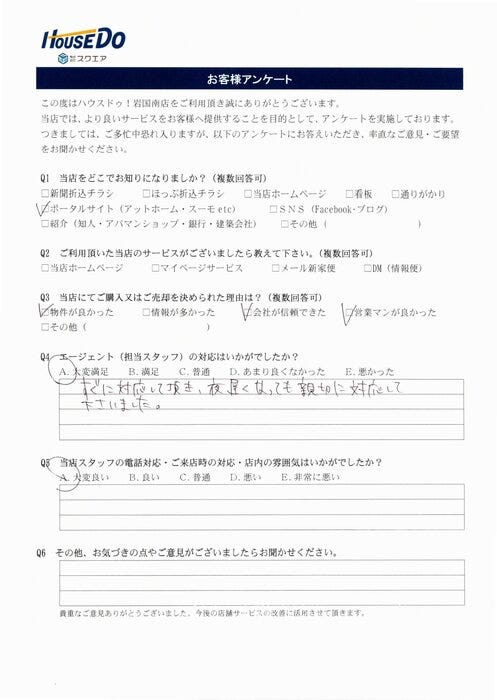 HOUSEDO
株式会社 スクエア
お客様アンケート
この度はハウスドゥ！岩国南店をご利用頂き誠にありがとうございます。
当店では、より良いサービスをお客様へ提供することを目的として、アンケートを実施しております。
つきましては、ご多忙中恐れ入りますが、以下のアンケートにお答えいただき、率直なご意見・ご要望
をお聞かせください。
Q1 当店をどこでお知りになりましたか？（複数回答可）
□新聞折込チラシ □ほっぷ折込チラシ □当店ホームページ □看板 □通りがかり
☑ポータルサイト（アットホーム・スーモ etc） □ＳＮＳ（Facebook・ブログ）
□紹介（知人・アパマンショップ・銀行・建築会社） □その他（ ）
Q2 ご利用頂いた当店のサービスがございましたら教えて下さい。（複数回答可）
□当店ホームページ □マイページサービス □メール新家便 □DM（情報便）
Q3 当店にてご購入又はご売却を決められた理由は？（複数回答可）
☑物件が良かった □情報が多かった ☑会社が信頼できた ☑営業マンが良かった
□その他（ ）
Q4 エージェント（担当スタッフ）の対応はいかがでしたか？
A. 大変満足 B. 満足 C. 普通 D. あまり良くなかった E. 悪かった
すぐに対応して頂き、夜遅くなっても親切に対応して
下さいました。
Q5 当店スタッフの電話対応・ご来店時の対応・店内の雰囲気はいかがでしたか？
A. 大変良い B. 良い C. 普通 D. 悪い E. 非常に悪い
Q6 その他、お気づきの点やご意見がございましたらお聞かせください。
貴重なご意見ありがとうございました、今後の店舗サービスの改善に活用させて頂きます。